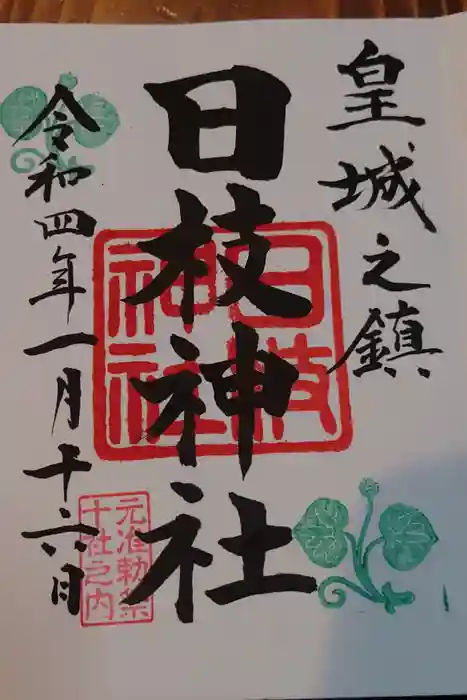 皇城之鎮
日枝神社
日枝神社
令和四年一月十六日
元准勅祭
十社之内